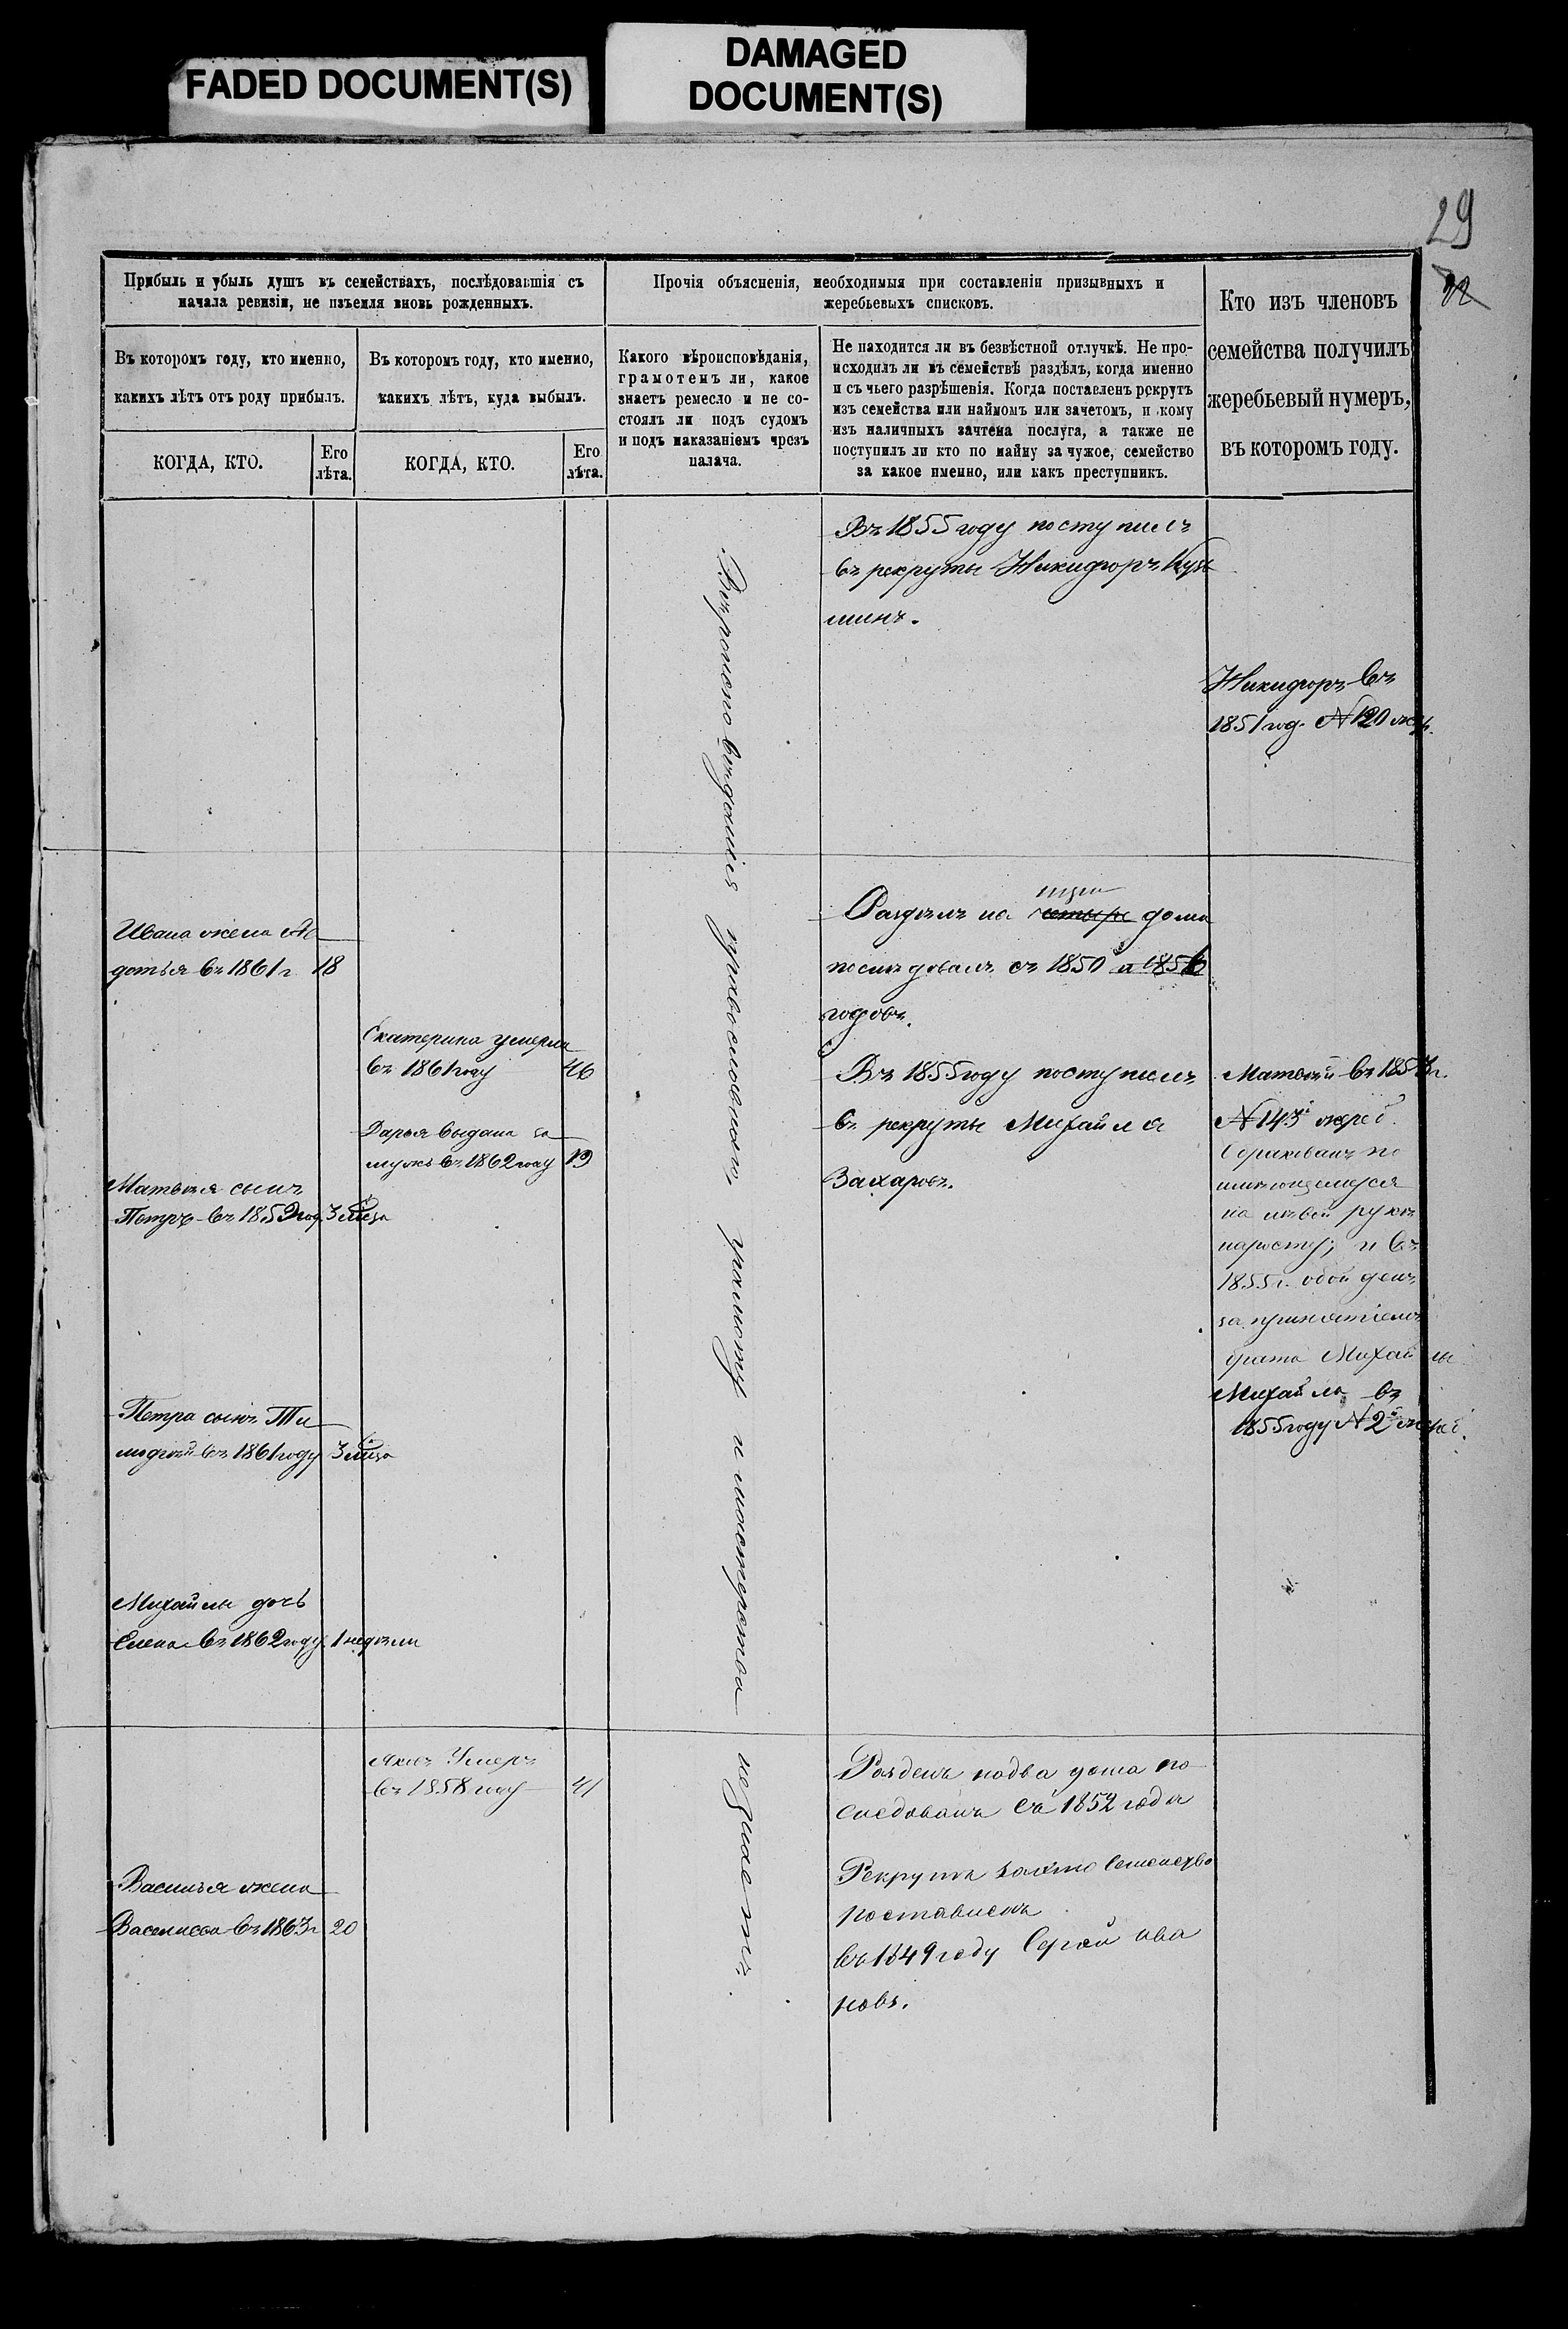 FADED DOCUMENT(S)
DAMAGED
DOCUMENT(S)
29
Прибыль и убыль душъ въ семействахъ, послѣдовавшія съ
начала ревизіи, не изъемля вновь рожденныхъ.
Въ которомъ году, кто именно,
какихъ лѣтъ отъ роду прибылъ.
КОГДА, КТО.
Его
лѣта.
Въ которомъ году, кто именно,
какихъ лѣтъ, куда выбылъ.
КОГДА, КТО.
Его
лѣта.
Прочія объясненія, необходимыя при составленіи призывныхъ и
жеребьевыхъ списковъ.
Какого вѣроисповѣданія,
грамотенъ ли, какое
знаетъ ремесло и не со-
стоялъ ли подъ судомъ
и подъ наказаніемъ чрезъ
палача.
Не находится ли въ безвѣстной отлучкѣ. Не про-
исходилъ ли въ семействѣ раздѣлъ, когда именно
и съ чьего разрѣшенія. Когда поставленъ рекрутъ
изъ семейства или наймомъ или зачетомъ, и кому
изъ наличныхъ зачтена послуга, а также не
поступилъ ли кто по найму за чужое, семейство
за какое именно, или какъ преступникъ.
Кто изъ членовъ
семейства получилъ
жеребьевый нумеръ,
въ которомъ году.
Въ 1855 году поступилъ
въ рекруты Никифоръ Кузь
минъ.
Никифоръ въ
1851 год. N 120 жер.
Вѣроисповѣданія православнаго, грамоту и мастерства не знаетъ.
Ивана жена Ав
дотья въ 1861 г. 18
Екатерина умерла
въ 1861 году 46
Дарья выдана за
мужъ въ 1862 году 19
Матвѣя сынъ
Петръ въ 1859 год. 3 м-ца
Петра сынъ Ти
мофей въ 1861 году 3 м-ца
Михайлы дочь
Елена въ 1862 году 1 недѣли
три
Раздѣлъ на четыре дома
послѣдовалъ съ 1850 и 1856
годовъ.
Въ 1855 году поступилъ
въ рекруты Михайла
Захаровъ.
Матвѣй въ 1853 г.
N 143й жереб.
забракованъ по
имѣющемуся
на лѣвой рукѣ
наросту; и въ
1855 г. обойденъ
за принятіемъ
брата Михайлы
Михайла въ
1855 году N 2й жереб.
Яковъ Умеръ
въ 1858 году 41
Василья жена
Василиса въ 1863 г. 20
Розделъ на два дома по
следовалъ Съ 1852 года
Рекрутъ семейство
поставленъ
въ 1849 году Сергѣй ива
новъ.